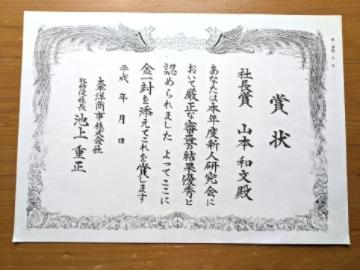 賞状
社長賞 山本和文殿
あなたは本年度新人研究会に
おいて厳正な審査の結果優秀と
認められました よってここに
金一封を添えてこれを賞します
平成 年 月 日
太洋商事株式会社
取締役社長 池上重正